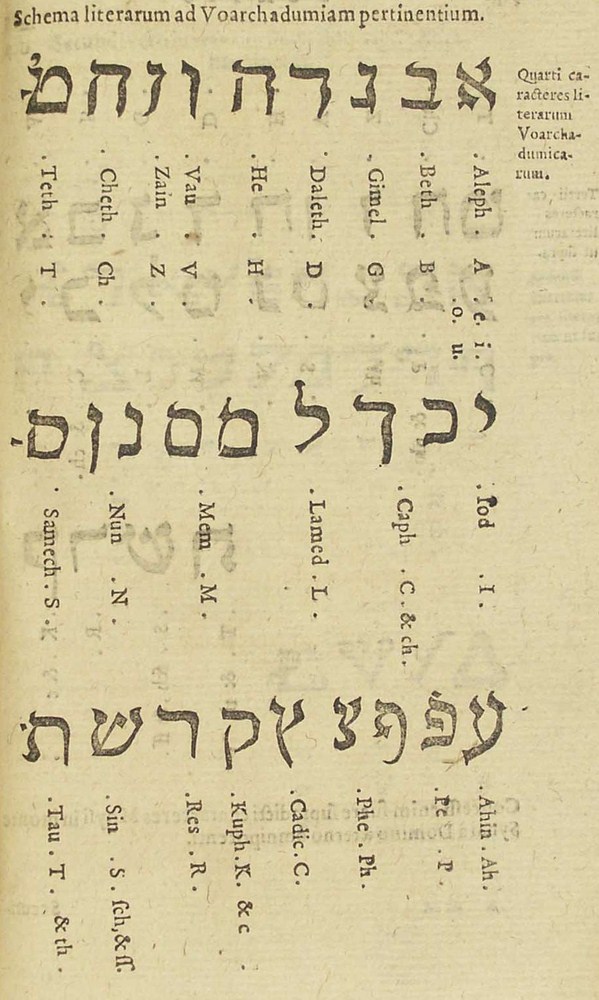 Schema literarum ad Voarchadumiam pertinentium.
Quarti ca-
racteres li-
terarum
Voarcha-
dumica-
rum.
א ב ג ד ה ו ז ח ט
Aleph. A. e. i. o. u.
Beth. B.
Gimel. G.
Daleth. D.
He. H.
Vau. V.
Zain. Z.
Cheth. Ch.
Teth: T.
י כ ך ל מ ם נ ן ס
Iod. I.
Caph. C. & ch.
Lamed. L.
Mem. M.
Nun. N.
Samech. S.
ע פ ף צ ץ ק ר ש ת
Ahin. Ah.
Pe. P.
Phe. Ph.
Cadic. C.
Kuph. K. & c
Res. R.
Sin. S. ſch, & ſſ.
Tau. T. & th.